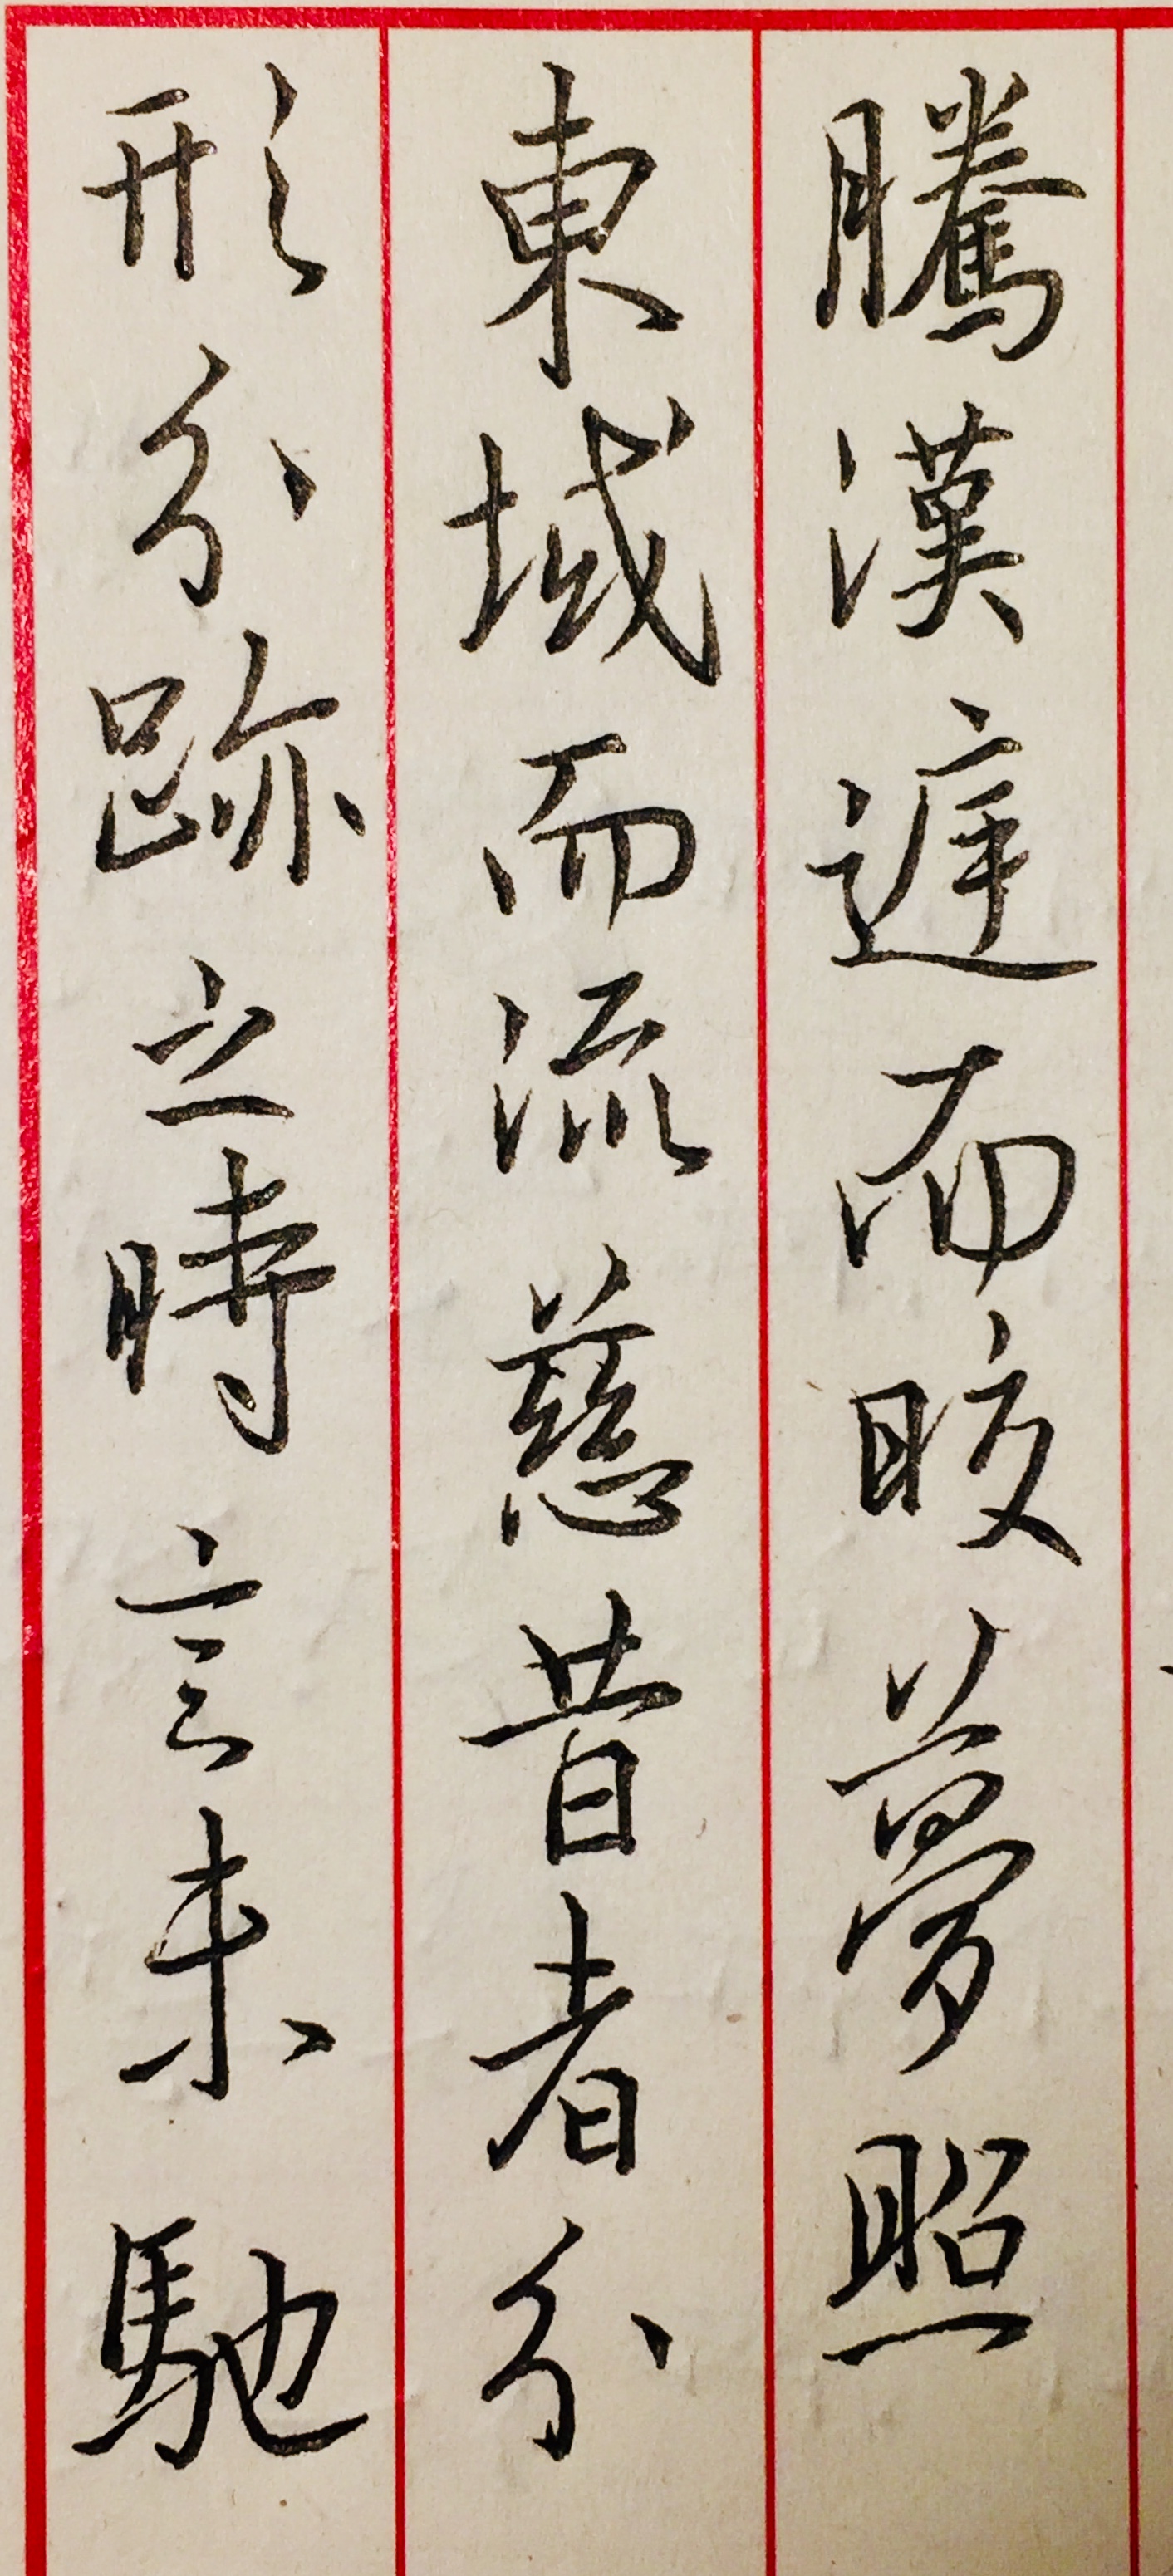 騰漢遲而皎夢照
東域而流慈昔者分
形分跡之時言未馳